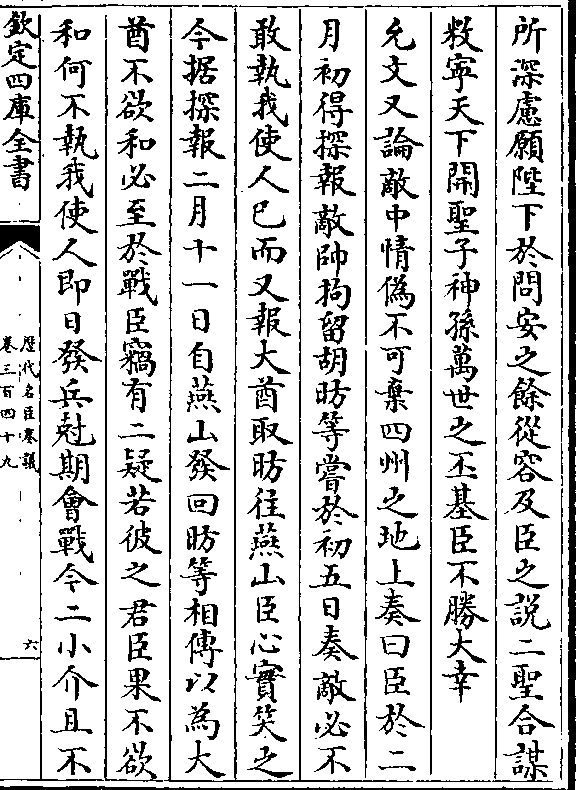 所深慮願陛下於問安之餘從容及臣之説二聖合謀
敉寧天下開聖子神孫萬世之丕基臣不勝大幸
允文又論敵中情僞不可棄四州之地上奏曰臣於二
月初得探報敵帥拘留胡昉等嘗於初五日奏敵必不
敢執我使人已而又報大酋取昉往燕山臣心實笑之
今据探報二月十一日自燕山發回昉等相傳以為大
酋不欲和必至於戰臣竊有二疑若彼之君臣果不欲
和何不執我使人即日發兵尅期會戰今二小介且不
欽定四庫全書
歷代名臣奏議
卷三百四十九
六